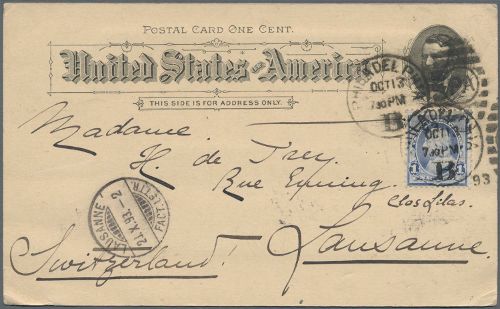 POSTAL CARD ONE CENT.
United States of America.
THIS SIDE IS FOR ADDRESS ONLY.
PHILADELPHIA
OCT 13
7 30 PM
B
OCT 1
7 30 PM
B
93
1
Madame
H. de Trey
Rue
Clos Lilas.
Lausanne.
Switzerland!
LAUSANNE
23.X.93.–2
FACT. LETTR.